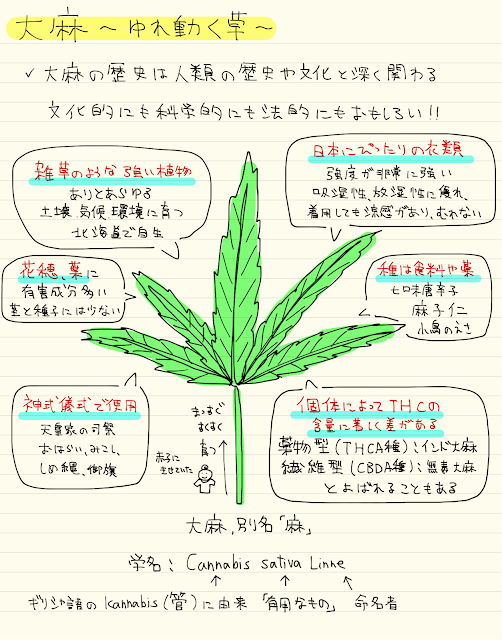 大麻 ～ゆれ動く草～
✓ 大麻の歴史は人類の歴史や文化と深く関わる
文化的にも科学的にも法的にもおもしろい!!
雑草のような強い植物
ありとあらゆる
土壌、気候、環境に育つ
北海道で自生
日本にぴったりの衣類
強度が非常に強い
吸湿性、放湿性に優れ、
着用しても涼感があり、むれない
花穂、葉に
有害成分多い
茎と種子には少ない
種は食料や薬
七味唐辛子
麻子仁
小鳥のえさ
神式儀式で使用
天皇家の司祭
おはらい、みこし、
しめ縄、御旗
まっすぐ
すくすく
育つ
赤子に
きせていた
個体によってTHCの
含量に著しく差がある
薬物型(THCA種):インド大麻
繊維型(CBDA種):無毒大麻
とよばれることもある
大麻、別名「麻」
学名: Cannabis sativa Linne
ギリシャ語のkannabis(管)に由来 「有用なもの」 命名者